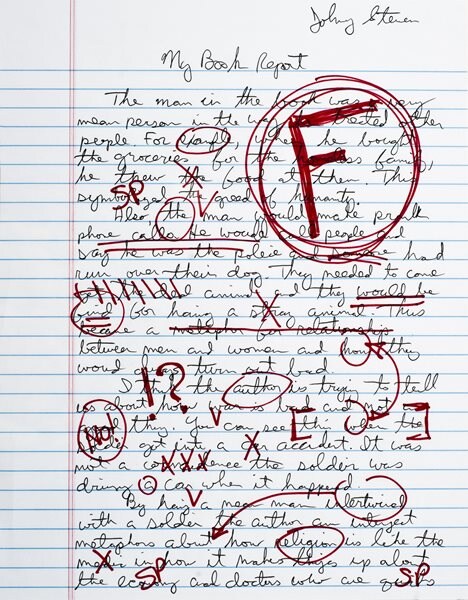 Johny Steven
My Book Report
The man in the book was very
mean person in the wa treated other
people. For example, when he bought
the groceries for the family,
he threw the food at them. This
SP
symbolized the greed of humanity.
Also, the man would make prank
phone calls. He would call people and
say he was the police and someone had
run over their dog. They needed to come
get the dead animal and they would be
fined for having a stray animal. This
became a metaphor for relationships
between men and women and how they
woud always turn out bad.
I think the author is trying to tell
us about how war is bad and not a
good thing. You can see this when the
No!
solder got into a car accident. It was
not a the soldeir was
driving a car when it happend.
By having a mean man intertwind
with a solder the author can interject
metaphors about how religion is like the
in how it makes up about
SP
SP
the economy and doctors who are
F
!?